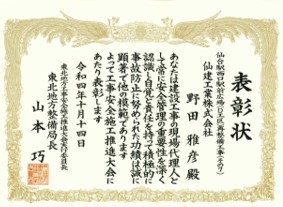 表彰状
仙台駅西口駅前広場
仙建工業株式会社
野田 雅彦 殿
あなたは建設工事の現場代理人と
して常に安全管理の重要性を深く
認識し自覚と責任を持って積極的に
事故防止に努められた功績は誠に
顕著で他の模範であります
よって工事安全施工推進大会に
あたり表彰します
令和四年十月十四日
東北地方工事安全施工推進大会実行委員長
東北地方整備局長
山本 巧